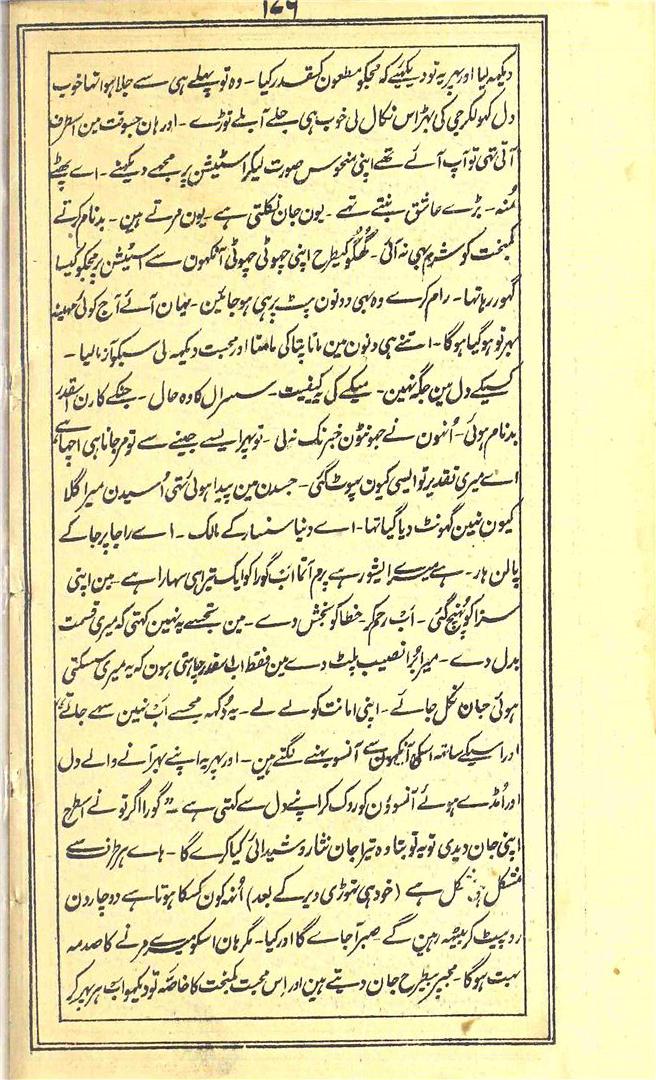 ۱۷۹
دیکھہ لیا اور پھر یہ تو دیکھئے کہ مجکو مطعون کسقدر کیا ۔ وہ تو پہلے ہی سے جلا ہوا تھا خوب
دل کھولکر جی کی بھڑاس نکال لی خوب ہی جلے آبلے توڑے ۔ اور ہان جسوقت مین اسطرف
آتی تھی تو آپ آئے تھے اپنی منحوس صورت لیکر اسٹیشن پر مجھے دیکھنے ۔ اے پھٹے
مُنہ ۔ بڑے عاشق بنتے تھے ۔ یون جان نکلتی ہے ۔ یون مرتے ہین ۔ بدنام کرتے
کمبخت کو شرم بھی نہ آئی ۔ گھُگّو کیطرح اپنی چھوٹی چھوٹی آنکھون سے اسٹیشن پر مجکو کیسا
گھور رہا تھا ۔ رام کرے وہ بھی دونون پٹ پر ہی ہو جائین ۔ یہان آئے آج کوئی مہینہ
بھر تو ہو گیا ہوگا ۔ اتنے ہی دنون مین ماتا پتا کی مامتا اور محبت دیکھہ لی سبکو آزما لیا ۔
کسیکے دل مین جگہ نہین ۔ میکے کی یہ کیفیت ۔ سسرال کا وہ حال ۔ جنکے کارن اسقدر
بدنام ہوئی ۔ اُنہون نے جھوٹون خبر تک نہ لی ۔ تو پھر ایسے جینے سے تو مر جانا ہی اچھا ہے
اے میری تقدیر تو ایسی کیون پھوٹ گئی ۔ جسدن مین پیدا ہوئی تھی اُسیدن میرا گلا
کیون نہین گھونٹ دیا گیا تھا ۔ اے دنیا سنسار کے مالک ۔ اے راجا پرجا کے
پالن ہار ۔ ہے میرے ایشور ہے پرم آتما اب گورا کو ایک تیرا ہی سہارا ہے ۔ مین اپنی
سزا کو پُہنچ گئی ۔ اب رحم کر خطا کو بخش دے ۔ مین تجھسے یہ نہین کہتی کہ میری قسمت
بدل دے ۔ میرا بُرا نصیب پلٹ دے مین فقط اب اسقدر چاہتی ہون کہ یہ میری سسکتی
ہوئی جان نکل جائے ۔ اپنی امانت کو لے لے ۔ یہ دُکھہ مجھسے اب نہین سہے جاتے
اور اسیکے ساتھہ اسکی آنکھون سے آنسو بہنے لگتے ہین ۔ اور پھر یہ اپنے بھر آنے والے دل
اور اُمڈے ہوئے آنسوؤن کو روک کر اپنے دل سے کہتی ہے ۔ "گورا اگر تو نے اسطرح
اپنی جان دیدی تو یہ تو بتا وہ تیرا جان نثار و شیدائی کیا کرے گا ۔ ہاے ہر طرف سے
مشکل ہی مشکل ہے (خود ہی تھوڑی دیر کے بعد) اُنہہ کون کسکا ہوتا ہے دو چار دن
رو پیٹ کر بیٹھہ رہین گے ۔ صبر آ جاے گا اور کیا ۔ مگر ہان اسکو میرے مرنے کا صدمہ
بہت ہوگا ۔ مجھپر بیطرح جان دیتے ہین اور اس محبت کمبخت کا خاصّہ تو دیکھو اب ہر پھر کر